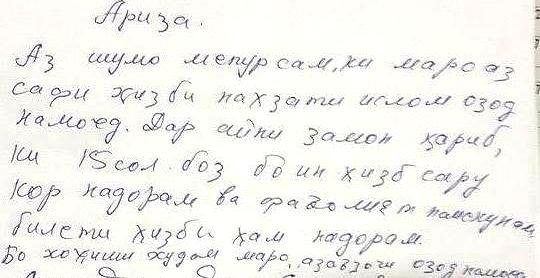 Ариза.
Аз шумо мепурсам, ки маро аз
сафи ҳизби нахзати ислом озод
намоед. Дар айни замон қариб,
ки 15 сол боз бо ин ҳизб сару
кор надорам ва фаъолият намекунам
билети ҳизби ҳам надорам.
Бо хоҳиши худам маро аз аъзоги озод намоед